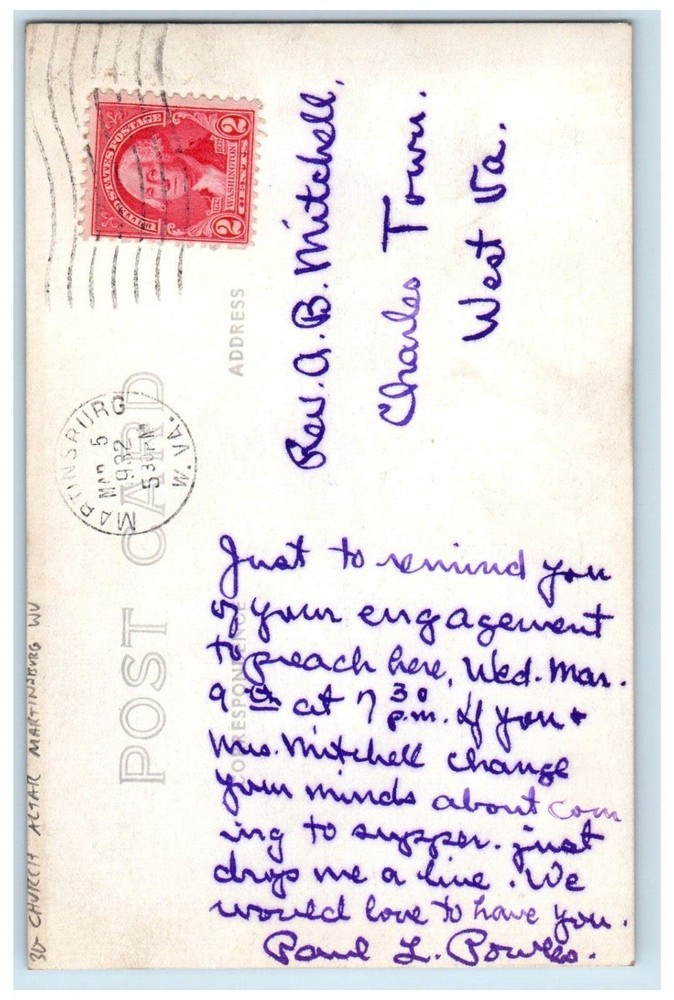 UNITED STATES POSTAGE
WASHINGTON
2 CENTS 2
MARTINSBURG
W. VA.
MAR 5
1932
5 30 PM
POST CARD
ADDRESS
CORRESPONDENCE
Rev. A. B. Mitchell,
Charles Town.
West Va.
Just to remind you
of your engagement
to preach here, Wed. Mar.
9th at 7 30 p.m. If you +
Mrs. Mitchell change
your minds about com
ing to supper. just
drop me a line. We
would love to have you.
Paul L. Powles.
CHURCH ALTAR MARTINSBURG WV